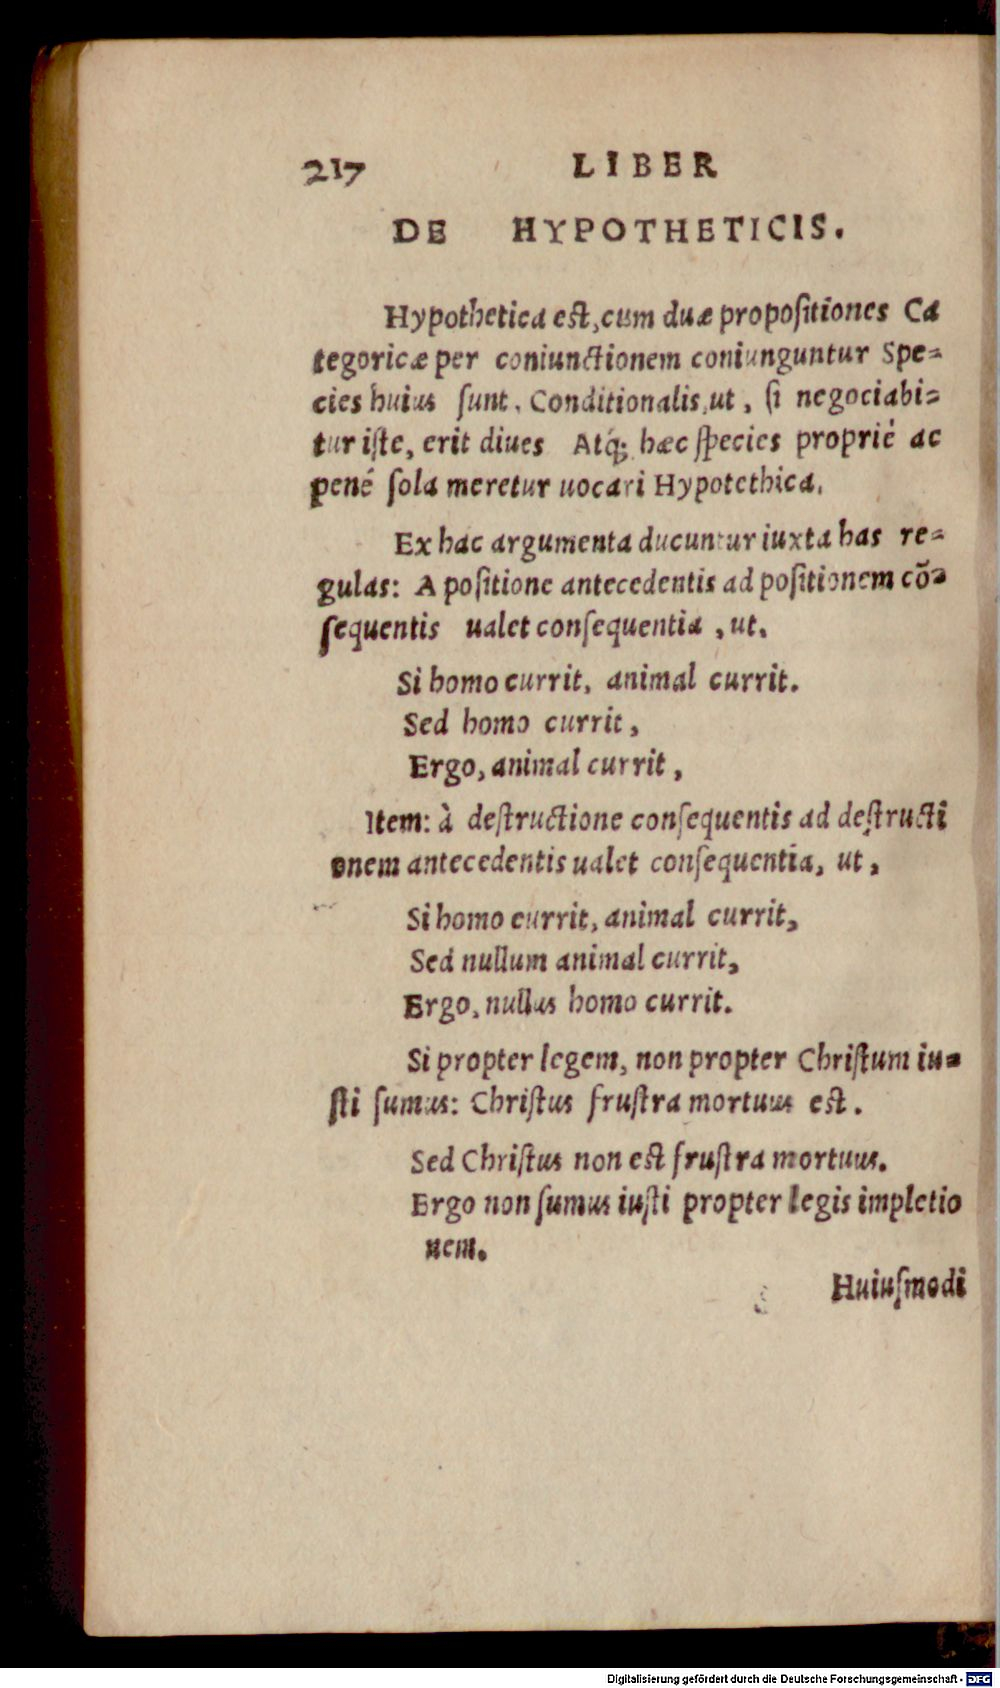 217 LIBER
DE HYPOTHETICIS.
Hypothetica est, cum duæ propoſitiones Ca
tegoricæ per coniunctionem coniunguntur Spe=
cies huius ſunt. Conditionalis, ut, ſi negociabi=
tur iſte, erit diues Atq́; hæc ſpecies proprié ac
pené ſola meretur uocari Hypotethica.
Ex hac argumenta ducuntur iuxta has re=
gulas: A poſitione antecedentis ad poſitionem cō=
ſequentis ualet conſequentia, ut.
Si homo currit, animal currit.
Sed homo currit,
Ergo, animal currit,
Item: à deſtructione conſequentis ad deſtructi
onem antecedentis ualet conſequentia, ut,
Si homo currit, animal currit,
Sed nullum animal currit,
Ergo, nullus homo currit.
Si propter legem, non propter Chriſtum iu=
ſti ſumus: Chriſtus fruſtra mortuus est.
Sed Chriſtus non est fruſtra mortuus.
Ergo non ſumus iuſti propter legis impletio
nem.
Huiuſmodi
Digitalisierung gefördert durch die Deutsche Forschungsgemeinschaft - DFG